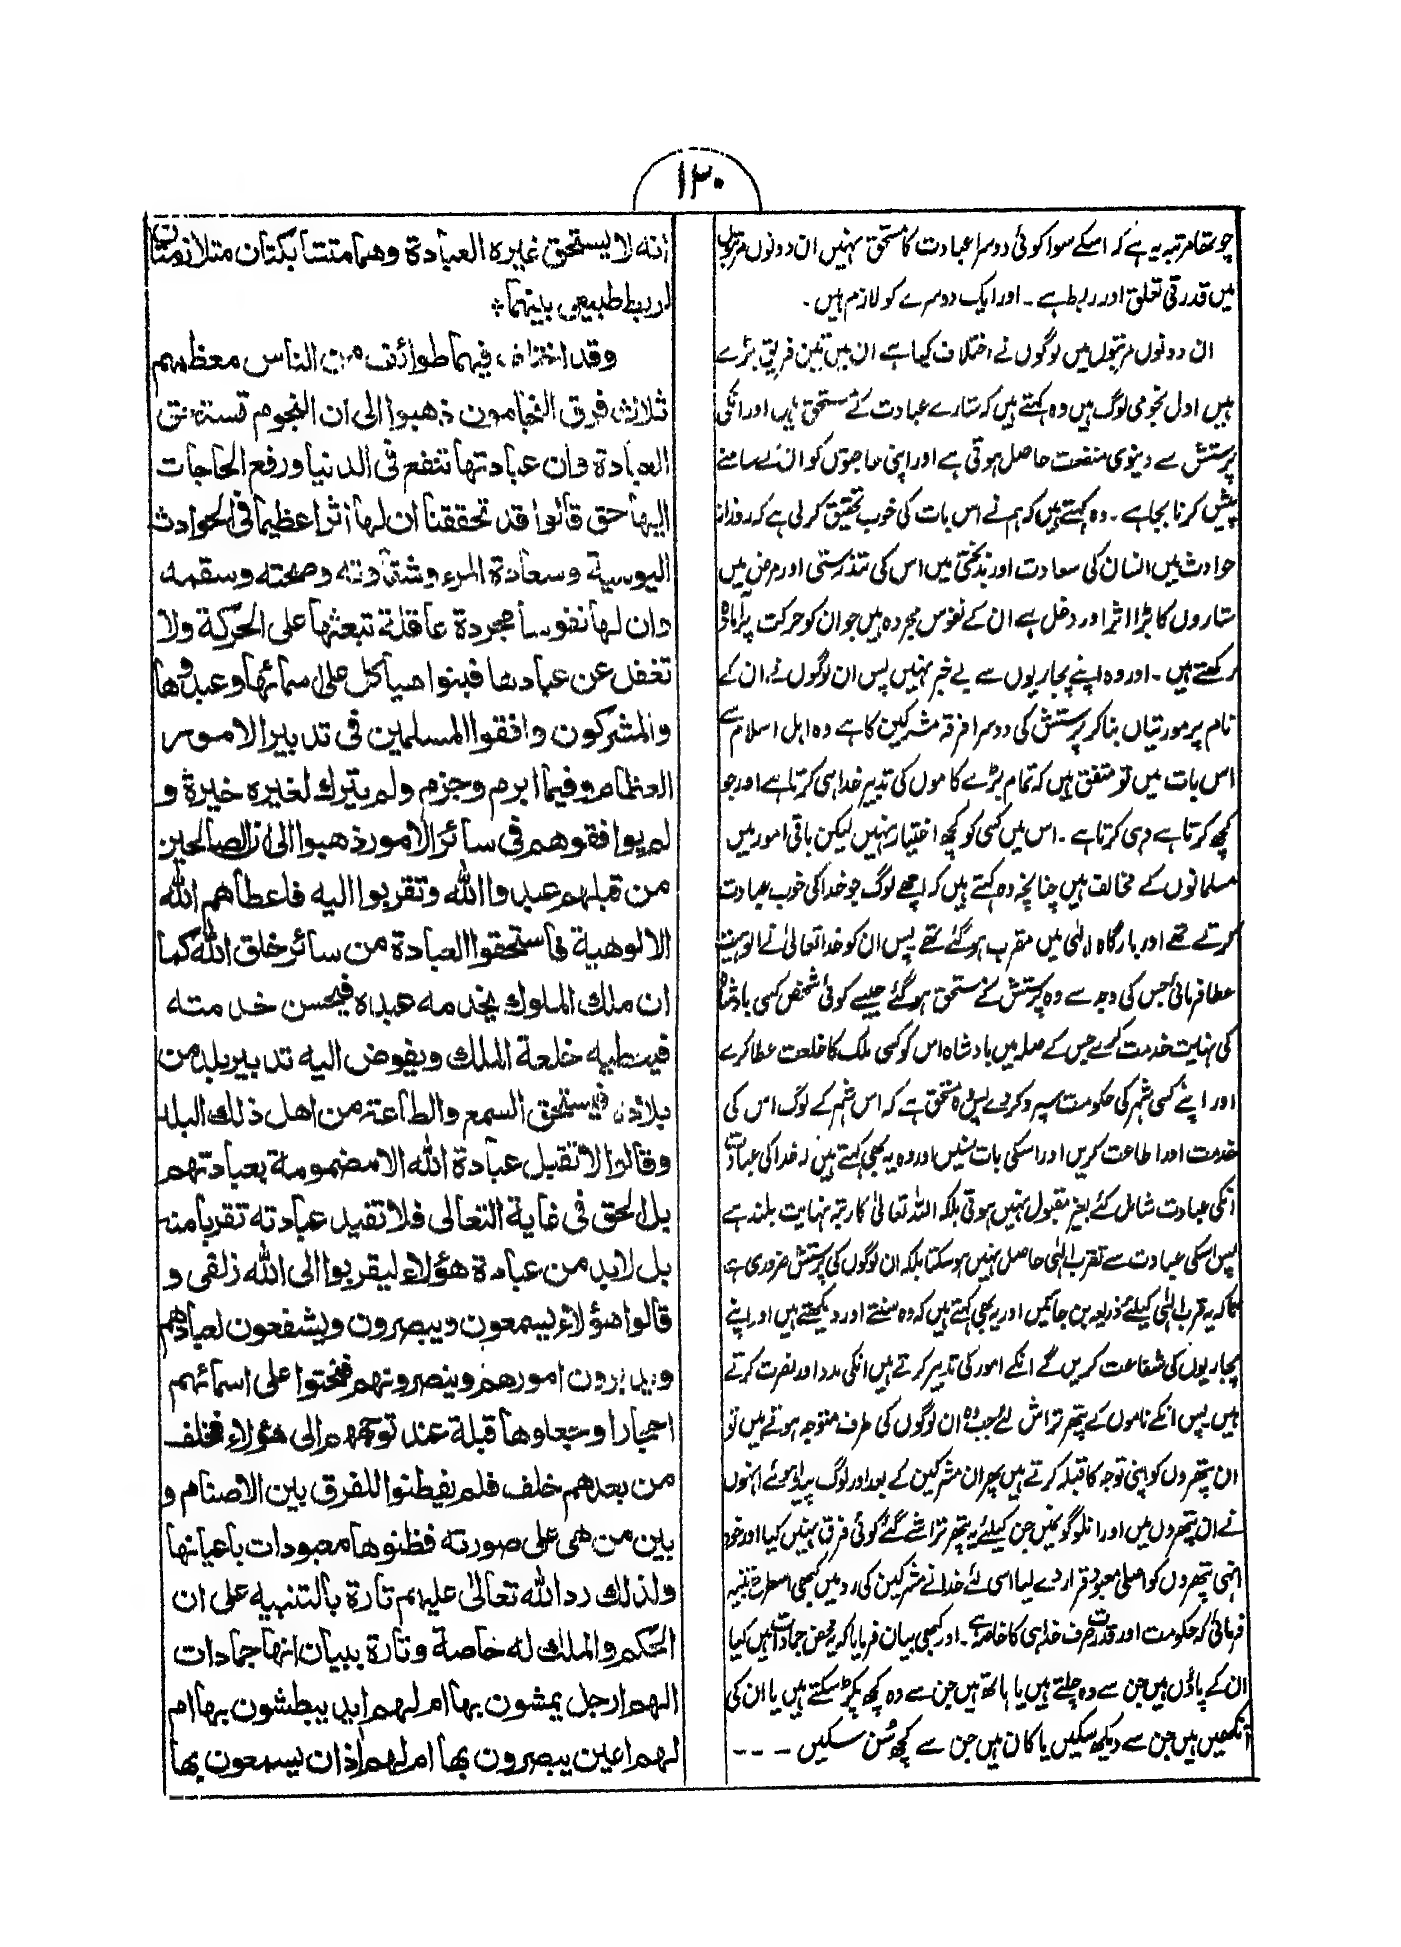 ۱۲۰
چوتھا مرتبہ یہ ہے کہ اسکے سوا کوئی دوسرا عبادت کا مستحق نہیں ان دونوں مرتبوں
میں قدرتی تعلق اور ربط ہے ۔ اور ایک دوسرے کو لازم ہیں ۔
ان دونوں مرتبوں میں لوگوں نے اختلاف کیا ہے ان میں تین فریق بڑے
ہیں اول نجومی لوگ ہیں وہ کہتے ہیں کہ ستارے عبادت کے مستحق ہیں اور انکی
پرستش سے دینوی منفعت حاصل ہوتی ہے اور اپنی حاجتوں کو ان کے سامنے
پیش کرنا بجا ہے ۔ وہ کہتے ہیں کہ ہم نے اس بات کی خوب تحقیق کر لی ہے کہ روزانہ
حوادث میں انسان کی سعادت اور بدبختی میں اس کی تندرستی اور مرض میں
ستاروں کا بڑا اثر اور دخل ہے ان کے نفوس مجردہ ہیں جو ان کو حرکت پر آمادہ
رکھتے ہیں ۔ اور وہ اپنے پجاریوں سے بے خبر نہیں پس ان لوگوں نے ان کے
نام پر مورتیاں بنا کر پرستش کی دوسرا فرقہ مشرکین کا ہے وہ اہل اسلام سے
اس بات میں تو متفق ہیں کہ تمام بڑے کاموں کی تدبیر خدا ہی کرتا ہے اور جو
کچھ کرتا ہے وہی کرتا ہے ۔ اس میں کسی کو کچھ اختیار نہیں لیکن باقی امور میں
مسلمانوں کے مخالف ہیں چنانچہ وہ کہتے ہیں کہ اچھے لوگ جو خدا کی خوب عبادت
کرتے تھے اور بارگاہ الہٰی میں مقرب ہو گئے تھے پس ان کو خدا تعالیٰ نے الوہیت
عطا فرمائی جس کی وجہ سے وہ پرستش کے مستحق ہو گئے جیسے کوئی شخص کسی بادشاہ
کی نہایت خدمت کرے جس کے صلہ میں بادشاہ اس کو کسی ملک کا خلعت عطا کرے
اور اپنے کسی شہر کی حکومت سپرد کر دے پس وہ مستحق ہے کہ اس شہر کے لوگ اس کی
خدمت اور اطاعت کریں اور اسکی بات سنیں اور وہ یہ بھی کہتے ہیں کہ خدا کی عبادت
انکی عبادت شامل کئے بغیر مقبول نہیں ہوتی بلکہ اللہ تعالیٰ کا رتبہ نہایت بلند ہے
پس اسکی عبادت سے تقرب الٰہی حاصل نہیں ہو سکتا بلکہ ان لوگوں کی پرستش ضروری ہے
تاکہ یہ قرب الٰہی کیلئے ذریعہ بن جائیں اور یہ بھی کہتے ہیں کہ وہ سنتے اور دیکھتے ہیں اور اپنے
پجاریوں کی شفاعت کریں گے انکے امور کی تدبیر کرتے ہیں انکی مدد اور نصرت کرتے
ہیں پس انکے ناموں کے پتھر تراش لئے جب وہ ان لوگوں کی طرف متوجہ ہوتے ہیں تو
ان پتھروں کو اپنی توجہ کا قبلہ کرتے ہیں پھر ان مشرکین کے بعد اور لوگ پیدا ہوئے انہوں
نے ان پتھروں میں اور ان لوگو نمیں جن کیلئے یہ پتھر تراشے گئے کوئی فرق نہیں کیا اور خود
انہی پتھروں کو اصلی معبود قرار دے لیا اسی لئے خدا نے مشرکین کی رد میں کبھی اسطرح تنبیہ
فرمائی کہ حکومت اور قدرت صرف خدا ہی کا خاصہ ہے ۔ اور کبھی بیان فرمایا کہ یہ محض جمادات ہیں کیا
ان کے پاؤں ہیں جن سے وہ چلتے ہیں یا ہاتھ ہیں جن سے وہ کچھ پکڑ سکتے ہیں یا ان کی
آنکھیں ہیں جن سے دیکھ سکیں یا کان ہیں جن سے کچھ سُن سکیں - - -
انه لا يستحق غيره العبادة وهما متشابكتان متلازمتان
لربط طبيعي بينهما ٭
وقد اختلف فيهما طوائف من الناس معظمهم
ثلاث فرق النجامون ذهبوا الى ان النجوم تستحق
العبادة وان عبادتها تنفع في الدنيا ورفع الحاجات
اليها حق قالوا قد تحققنا ان لها اثرا عظيما في الحوادث
اليومية وسعادة المرء وشقاوته وصحته وسقمه
وان لها نفوسا مجردة عاقلة تبعثها على الحركة ولا
تغفل عن عبادها فبنوا هياكل على اسمائها وعبدوها
والمشركون وافقوا المسلمين في تدبير الامور
العظام وفيما ابرم وجزم ولم يترك لغيره خيرة و
لم يوافقوهم في سائر الامور ذهبوا الى ان الصالحين
من قبلهم عبدوا الله وتقربوا اليه فاعطاهم الله
الالوهية فاستحقوا العبادة من سائر خلق الله كما
ان ملك الملوك يخدمه عبده فيحسن خدمته
فيعطيه خلعة الملك ويفوض اليه تدبير بلد من
بلاده فيستحق السمع والطاعة من اهل ذلك البلد
وقالوا لا تقبل عبادة الله الا مضمومة بعبادتهم
بل الحق في غاية التعالى فلا تفيد عبادته تقربا منه
بل لابد من عبادة هؤلاء ليقربوا الى الله زلفى و
قالوا هؤلاء يسمعون ويبصرون ويشفعون لعبادهم
ويدبرون امورهم وينصرونهم فنحتوا على اسمائهم
احجارا وجعلوها قبلة عند توجههم الى هؤلاء فخلف
من بعدهم خلف فلم يفطنوا للفرق بين الاصنام و
بين من هي على صورته فظنوها معبودات باعيانها
ولذلك رد الله تعالىٰ عليهم تارة بالتنبيه على ان
الحكم والملك له خاصة وتارة ببيان انها جمادات
الهم ارجل يمشون بها ام لهم ايد يبطشون بها ام
لهم اعين يبصرون بها ام لهم اذان يسمعون بها